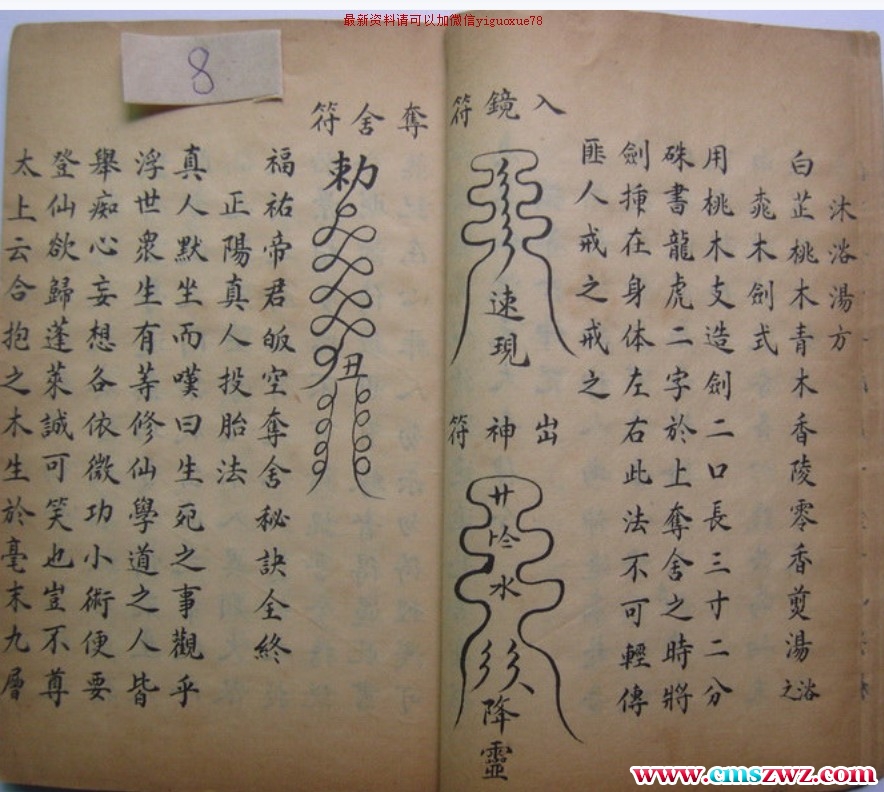 最新资料请可以加微信yiguoxue78
8
沐浴湯方
白芷桃木青木香陵零香煎湯浴之
桃木劍式
用桃木支造劍二口長三寸二分
硃書龍虎二字於上奪舍之時將
劍揷在身体左右此法不可輕傳
匪人戒之戒之
入鏡符
速現
出神符
水
降靈
奪舍符
勅
丑
福祐帝君皈空奪舍秘訣全終
正陽真人投胎法
真人默坐而嘆曰生死之事觀乎
浮世衆生有等修仙學道之人皆
舉痴心妄想各依微功小術便要
登仙欲歸蓬萊誠可笑也豈不尊
太上云合抱之木生於毫末九層
www.cmszwz.com